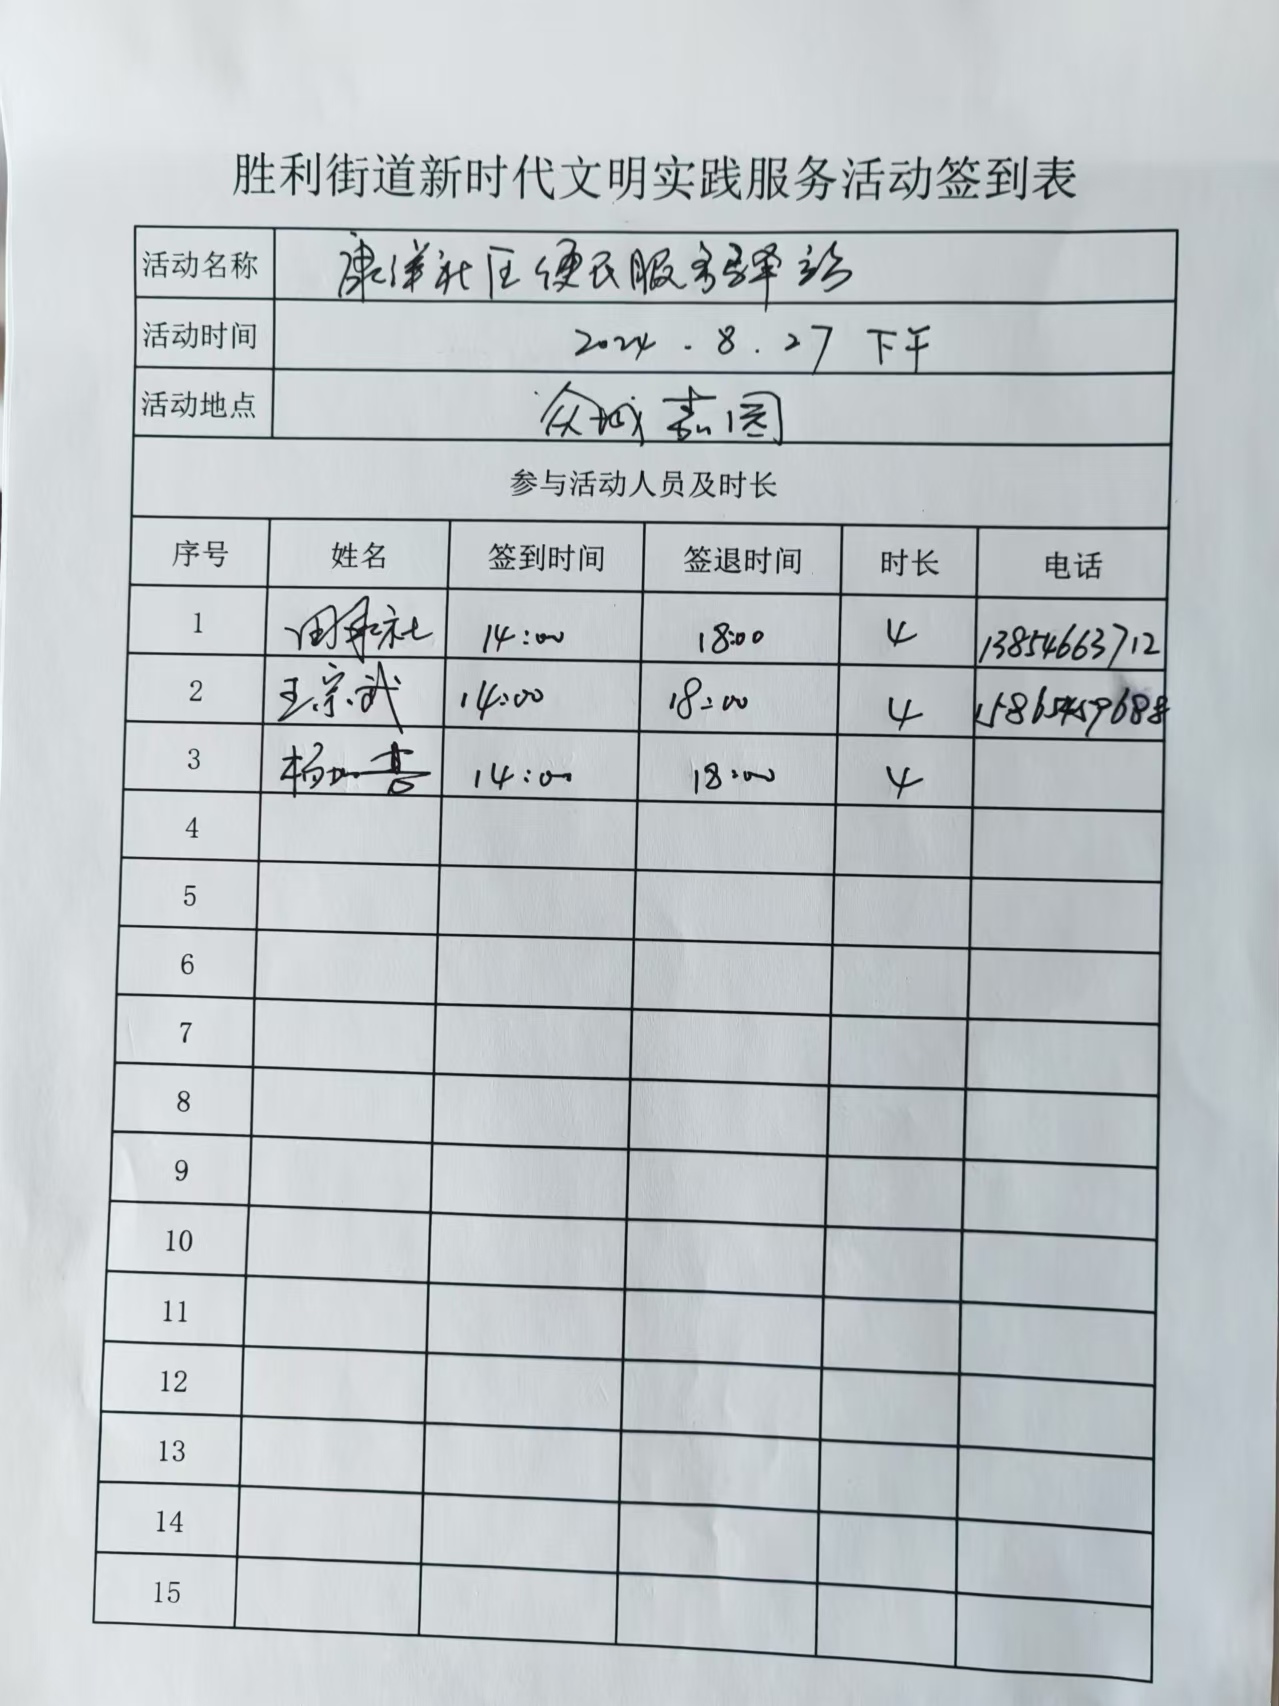 胜利街道新时代文明实践服务活动签到表
活动名称 康洋社区便民服务驿站
活动时间 2024.8.27 下午
活动地点 众城嘉园
参与活动人员及时长
序号 姓名 签到时间 签退时间 时长 电话
1 14:00 18:00 4 13854663712
2 王宗武 14:00 18:00 4 15865459688
3 杨 14:00 18:00 4
4
5
6
7
8
9
10
11
12
13
14
15